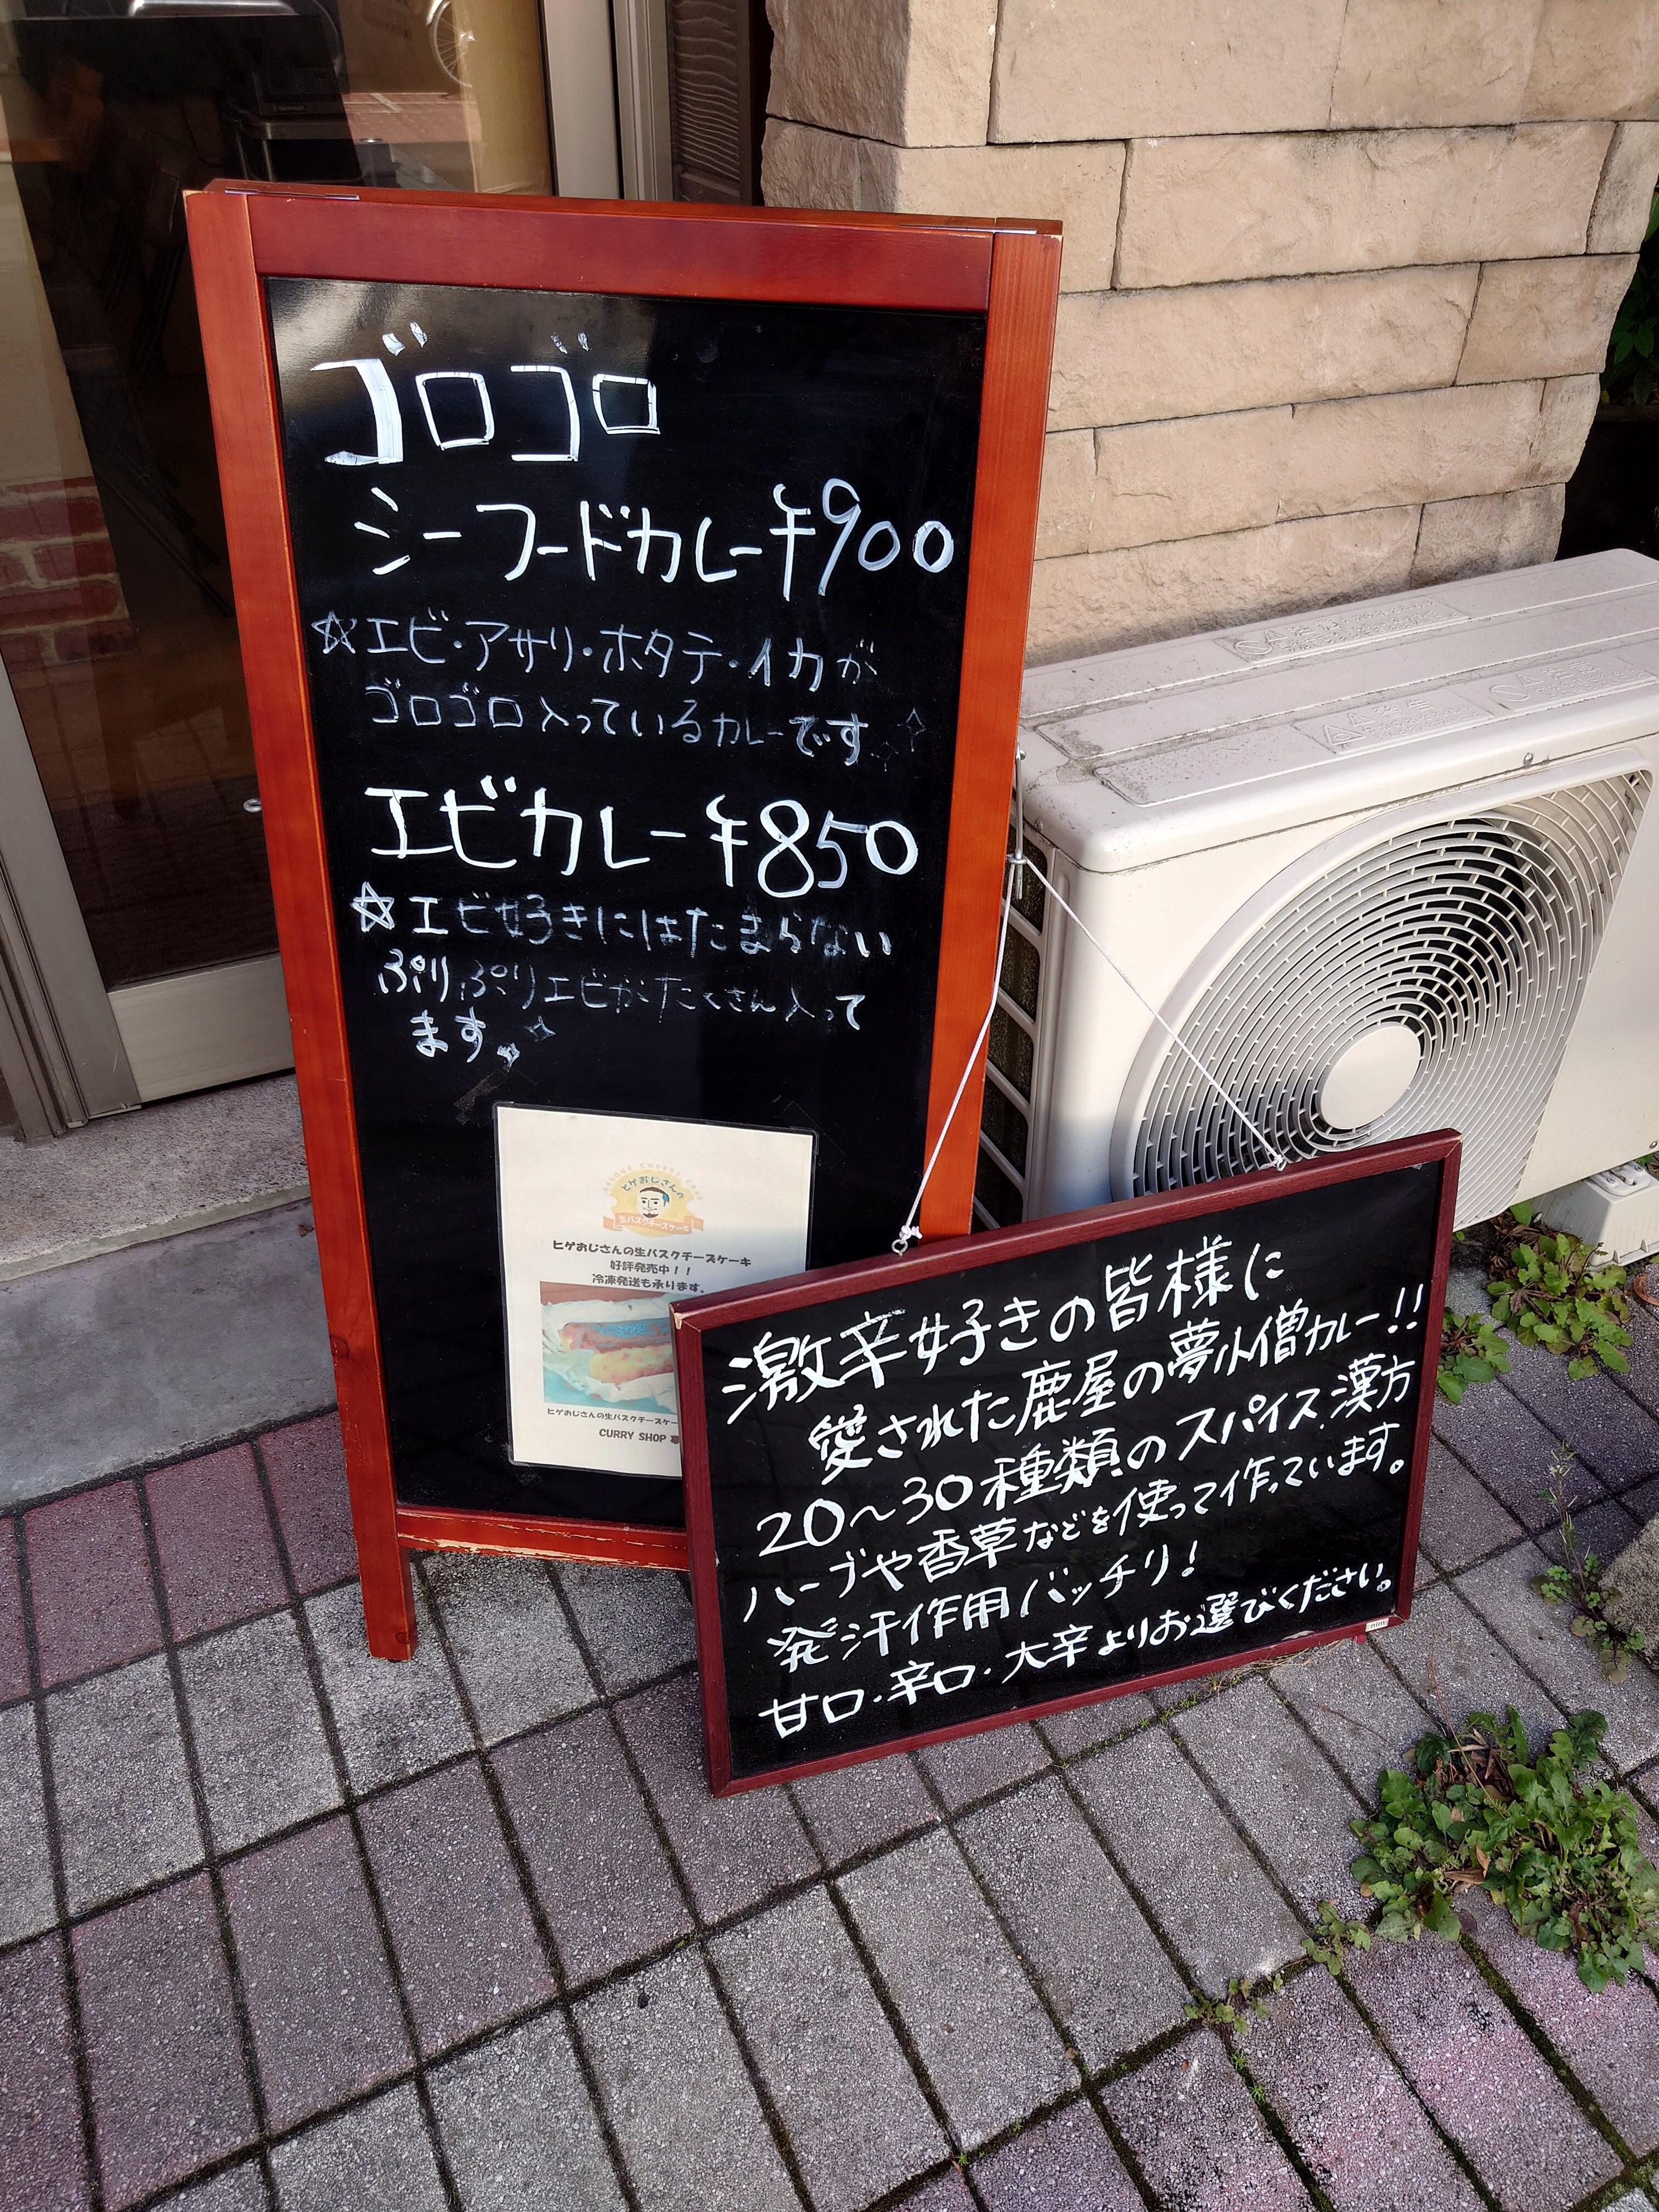 ゴロゴロ
シーフードカレー¥900
☆エビ・アサリ・ホタテ・イカが
ゴロゴロ入っているカレーです
エビカレー¥850
☆エビ好きにはたまらない
ぷりぷりエビがたくさん入って
ます。
ヒゲおじさんの
生バスクチーズケーキ
ヒゲおじさんの生バスクチーズケーキ
好評発売中!!
冷凍発送も承ります。
ヒゲおじさんの生バスクチーズケー
CURRY SHOP
激辛好きの皆様に
愛された鹿屋の夢小僧カレー!!
20〜30種類のスパイス、漢方
ハーブや香草などを使って作っています。
発汗作用バッチリ!
甘口・辛口・大辛よりお選びください。